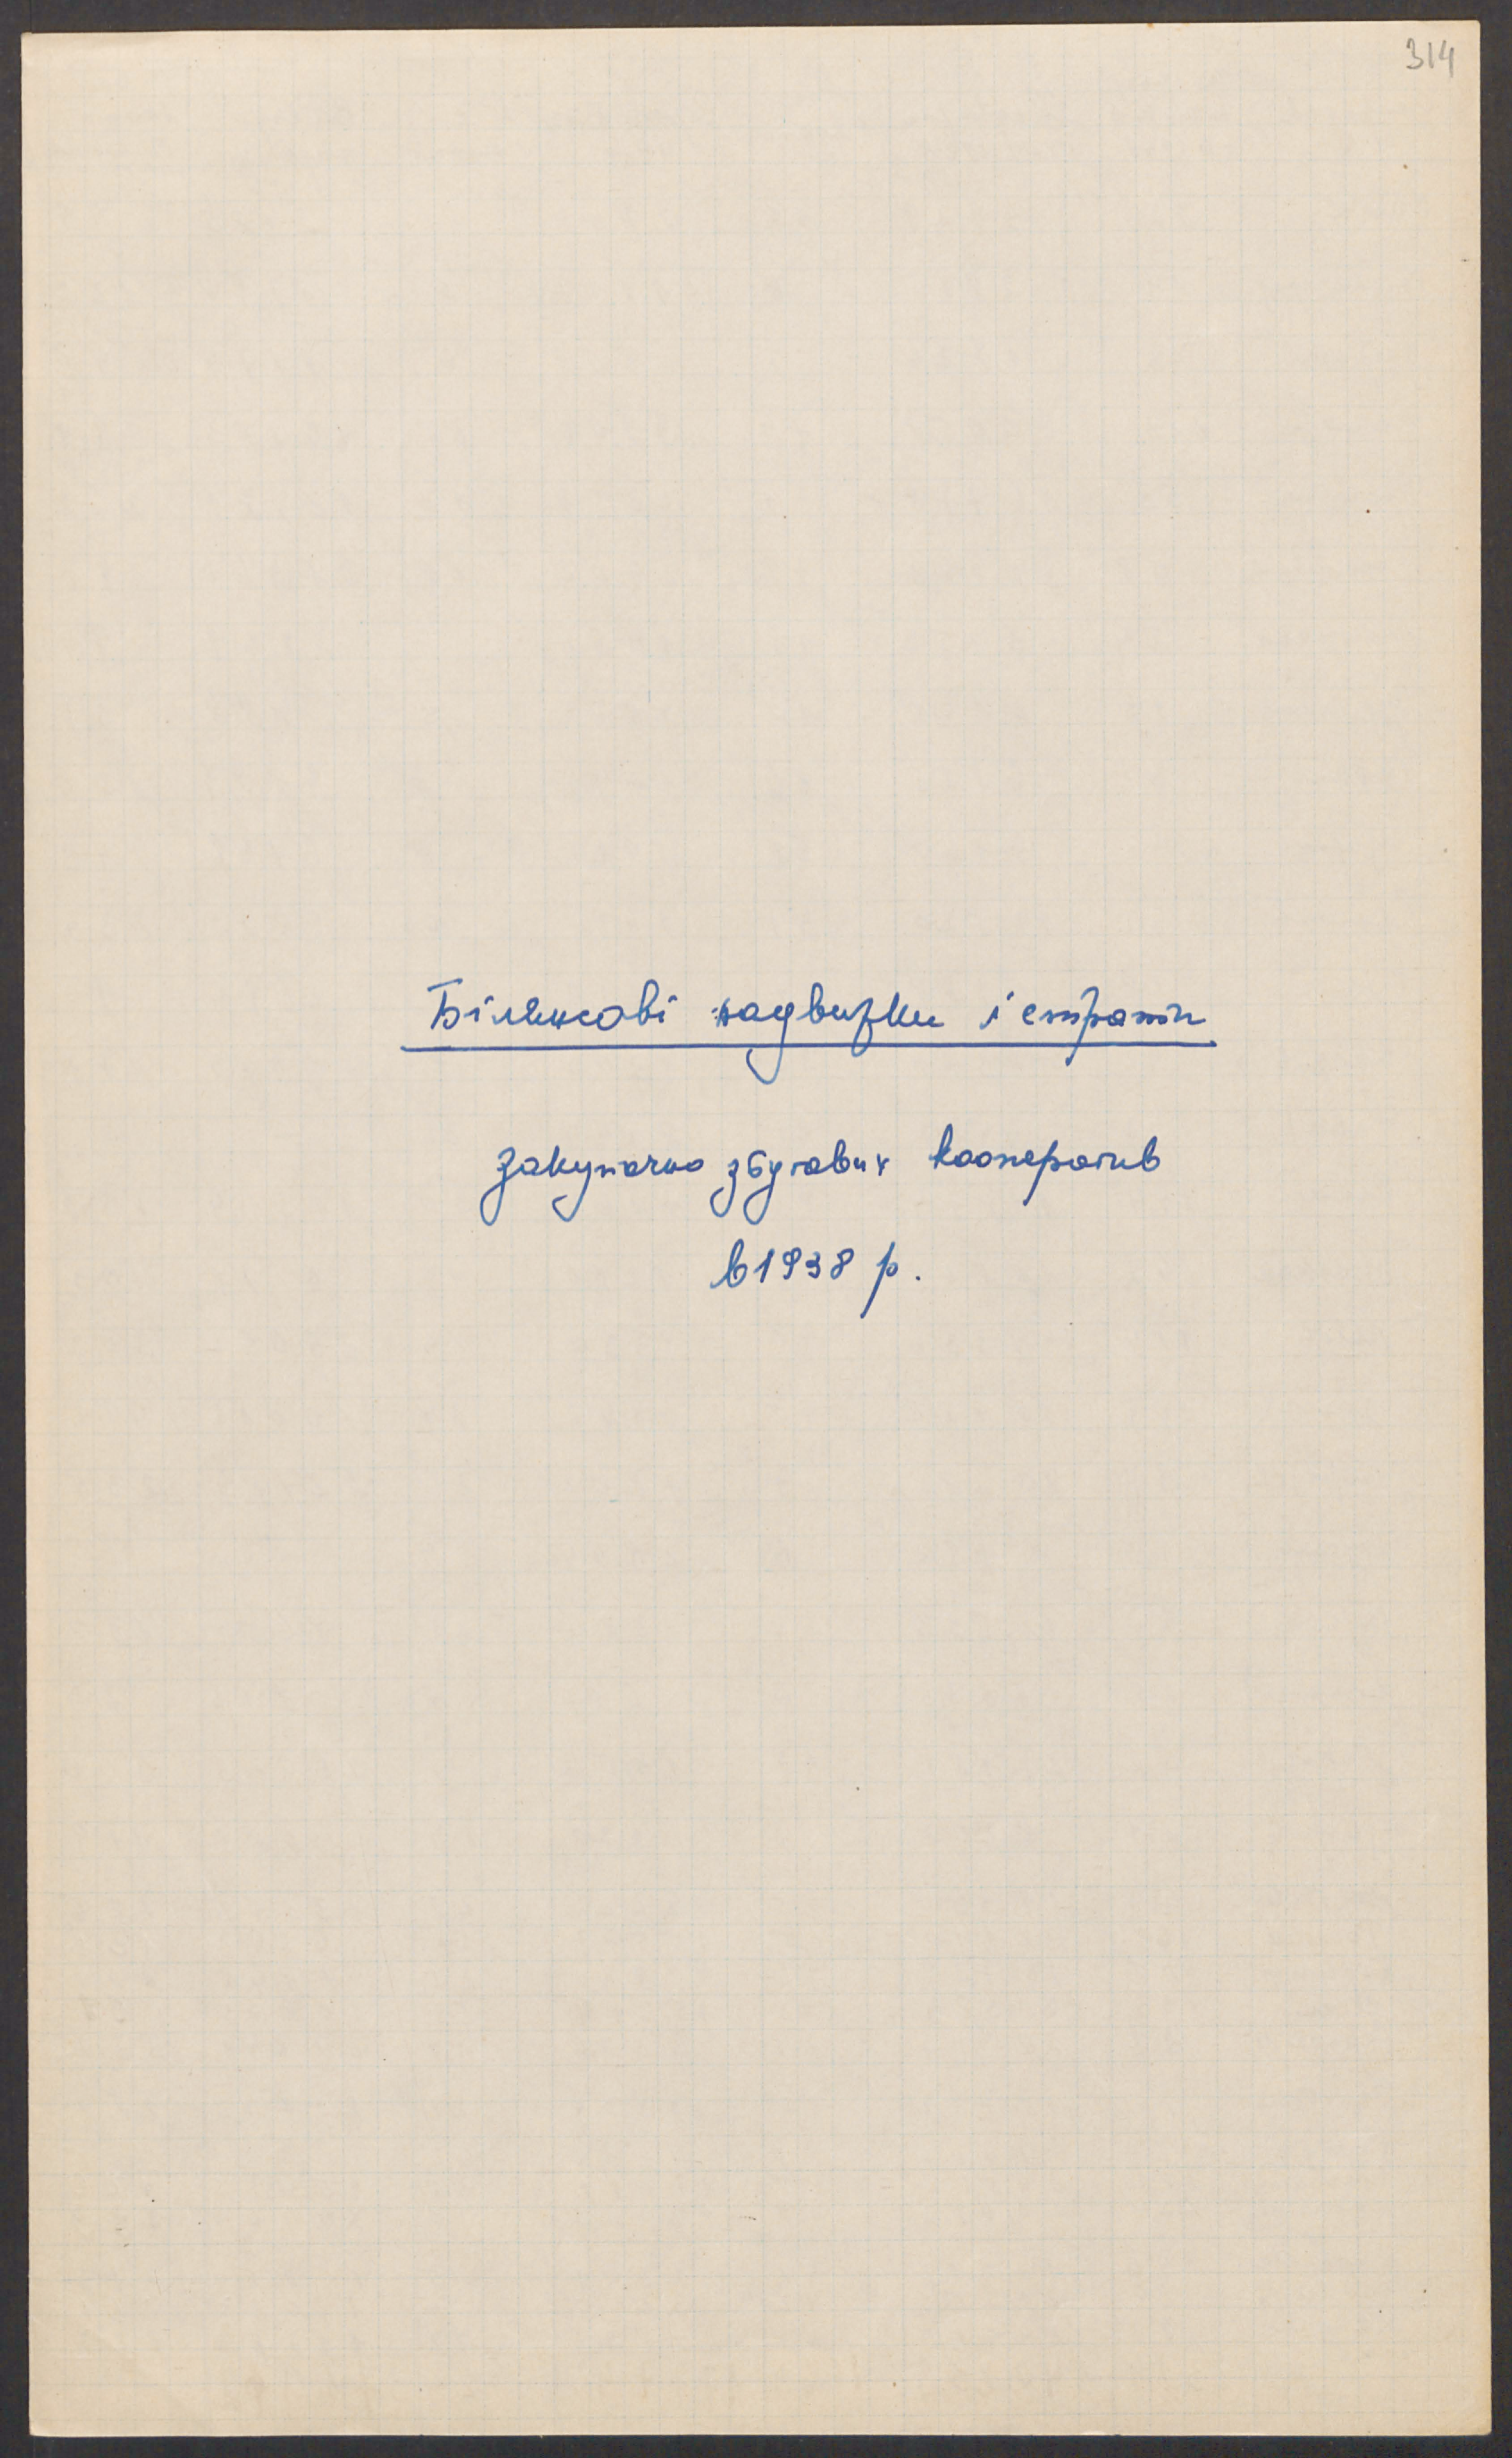 314
Білянсові надвижки і страти
закупочно збутових кооператив
в 1938 р.